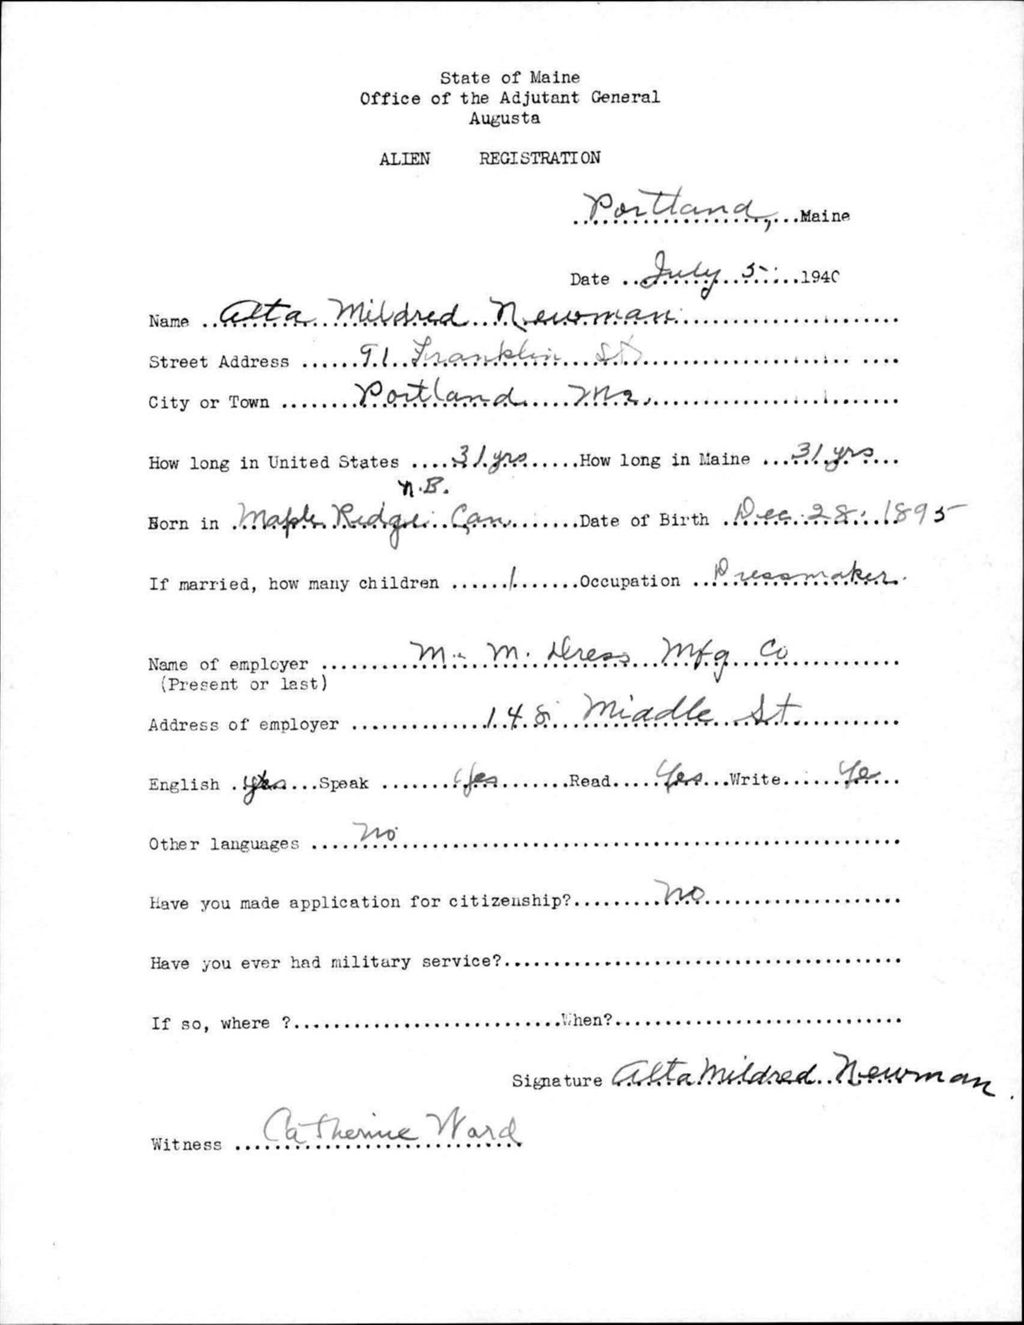 State of Maine
Office of the Adjutant General
Augusta
ALIEN REGISTRATION
Portland, Maine
Date July 5 1940
Name Alta Mildred Newman
Street Address 91 Franklin St
City or Town Portland Me.
How long in United States 31 yrs How long in Maine 31 yrs
N.B.
Born in Maple Ridge Can. Date of Birth Dec. 28. 1895
If married, how many children 1 Occupation Dressmaker.
Name of employer M. M. Dress Mfg Co
(Present or last)
Address of employer 148 Middle St
English yes Speak Yes Read Yes Write Ye
Other languages no
Have you made application for citizenship? no
Have you ever had military service?
If so, where ? When?
Signature Alta Mildred Newman
Witness Catherine Ward